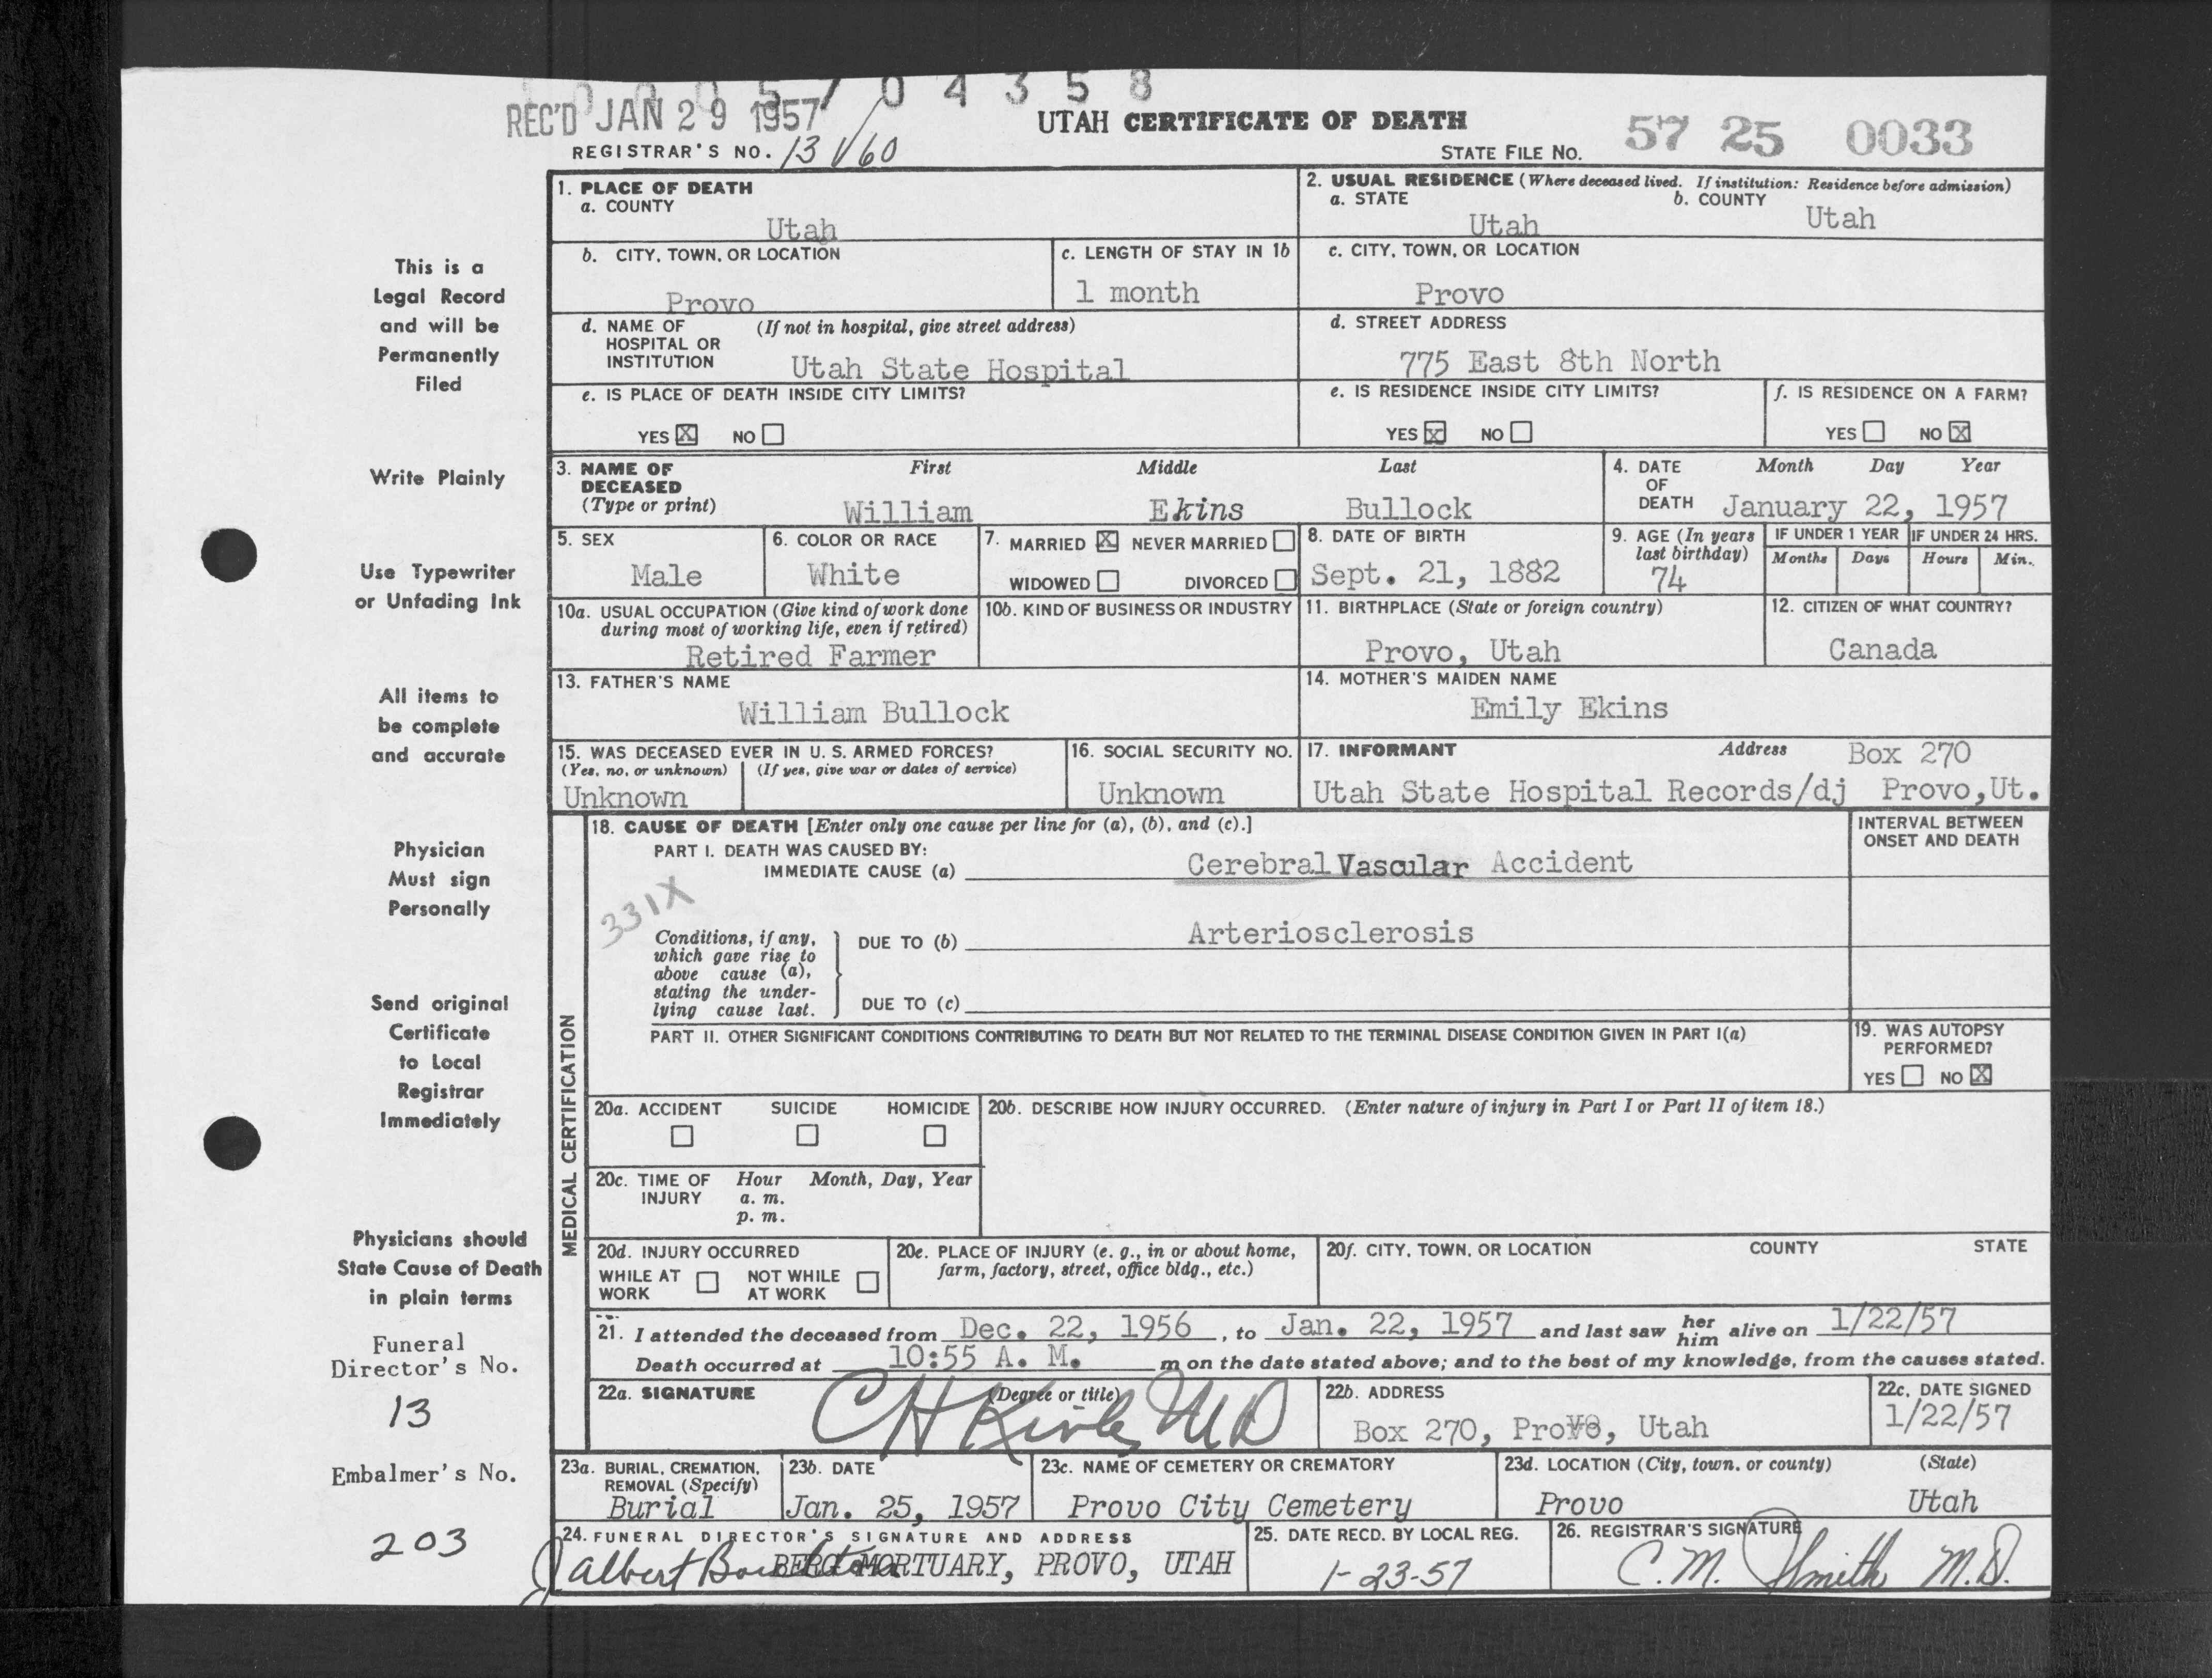 0 0 0 5 7 0 4 3 5 8
REC'D JAN 29 1957
UTAH CERTIFICATE OF DEATH
REGISTRAR'S NO. 13 V60
STATE FILE NO. 57 25 0033
1. PLACE OF DEATH
a. COUNTY
Utah
2. USUAL RESIDENCE (Where deceased lived. If institution: Residence before admission)
a. STATE b. COUNTY
Utah Utah
b. CITY, TOWN, OR LOCATION
Provo
c. LENGTH OF STAY IN 1b
1 month
c. CITY, TOWN, OR LOCATION
Provo
d. NAME OF (If not in hospital, give street address)
HOSPITAL OR
INSTITUTION Utah State Hospital
d. STREET ADDRESS
775 East 8th North
e. IS PLACE OF DEATH INSIDE CITY LIMITS?
YES X NO
e. IS RESIDENCE INSIDE CITY LIMITS?
YES X NO
f. IS RESIDENCE ON A FARM?
YES NO X
3. NAME OF First Middle Last
DECEASED
(Type or print) William Ekins Bullock
4. DATE Month Day Year
OF
DEATH January 22, 1957
5. SEX
Male
6. COLOR OR RACE
White
7. MARRIED X NEVER MARRIED
WIDOWED DIVORCED
8. DATE OF BIRTH
Sept. 21, 1882
9. AGE (In years
last birthday)
74
IF UNDER 1 YEAR
Months Days
IF UNDER 24 HRS.
Hours Min.
10a. USUAL OCCUPATION (Give kind of work done
during most of working life, even if retired)
Retired Farmer
10b. KIND OF BUSINESS OR INDUSTRY
11. BIRTHPLACE (State or foreign country)
Provo, Utah
12. CITIZEN OF WHAT COUNTRY?
Canada
13. FATHER'S NAME
William Bullock
14. MOTHER'S MAIDEN NAME
Emily Ekins
15. WAS DECEASED EVER IN U. S. ARMED FORCES?
(Yes, no, or unknown) (If yes, give war or dates of service)
Unknown
16. SOCIAL SECURITY NO.
Unknown
17. INFORMANT Address Box 270
Utah State Hospital Records/dj Provo,Ut.
MEDICAL CERTIFICATION
18. CAUSE OF DEATH [Enter only one cause per line for (a), (b), and (c).]
PART I. DEATH WAS CAUSED BY:
IMMEDIATE CAUSE (a) Cerebral Vascular Accident
INTERVAL BETWEEN
ONSET AND DEATH
331X
Conditions, if any,
which gave rise to
above cause (a),
stating the under-
lying cause last.
DUE TO (b) Arteriosclerosis
DUE TO (c)
PART II. OTHER SIGNIFICANT CONDITIONS CONTRIBUTING TO DEATH BUT NOT RELATED TO THE TERMINAL DISEASE CONDITION GIVEN IN PART I(a)
19. WAS AUTOPSY
PERFORMED?
YES NO X
20a. ACCIDENT SUICIDE HOMICIDE
20b. DESCRIBE HOW INJURY OCCURRED. (Enter nature of injury in Part I or Part II of item 18.)
20c. TIME OF Hour Month, Day, Year
INJURY a. m.
p. m.
20d. INJURY OCCURRED
WHILE AT NOT WHILE
WORK AT WORK
20e. PLACE OF INJURY (e. g., in or about home,
farm, factory, street, office bldg., etc.)
20f. CITY, TOWN, OR LOCATION COUNTY STATE
21. I attended the deceased from Dec. 22, 1956, to Jan. 22, 1957 and last saw her him alive on 1/22/57
Death occurred at 10:55 A. M. m on the date stated above; and to the best of my knowledge, from the causes stated.
22a. SIGNATURE (Degree or title)
C H MD
22b. ADDRESS
Box 270, Provo, Utah
22c. DATE SIGNED
1/22/57
23a. BURIAL, CREMATION,
REMOVAL (Specify)
Burial
23b. DATE
Jan. 25, 1957
23c. NAME OF CEMETERY OR CREMATORY
Provo City Cemetery
23d. LOCATION (City, town, or county) (State)
Provo Utah
24. FUNERAL DIRECTOR'S SIGNATURE AND ADDRESS
Albert BERG MORTUARY, PROVO, UTAH
25. DATE RECD. BY LOCAL REG.
1-23-57
26. REGISTRAR'S SIGNATURE
C. M. Smith M.D.
This is a
Legal Record
and will be
Permanently
Filed
Write Plainly
Use Typewriter
or Unfading Ink
All items to
be complete
and accurate
Physician
Must sign
Personally
Send original
Certificate
to Local
Registrar
Immediately
Physicians should
State Cause of Death
in plain terms
Funeral
Director's No.
13
Embalmer's No.
203